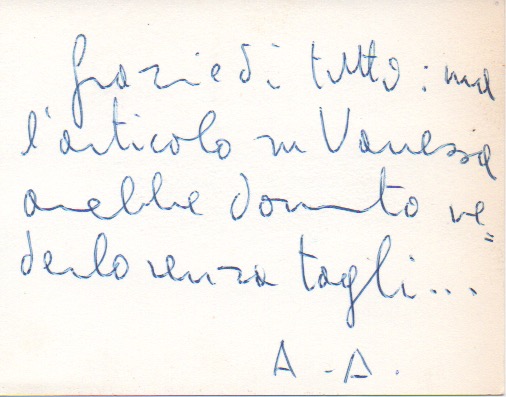 Grazie di tutto: ma
l'articolo su Vanessa
avrebbe dovuto ve=
derlo senza tagli...
A.A.